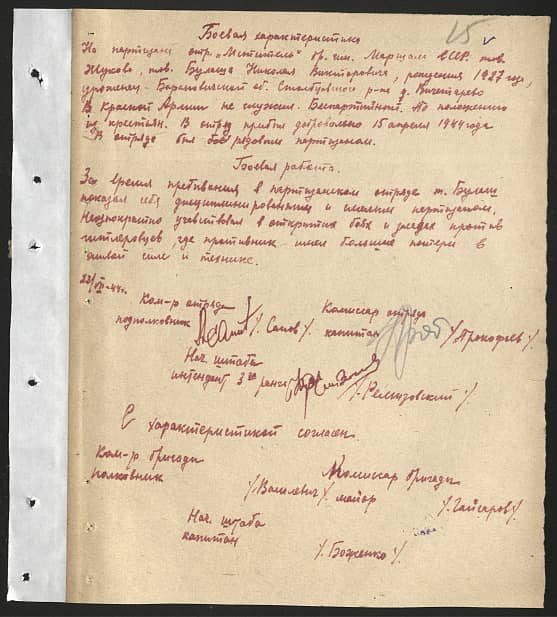 15
Боевая характеристика
На партизана отр. „Мститель" бр. им. Маршала СССР тов.
Жукова, тов. Булыща Николая Викторовича, рождения 1927 года,
уроженец Барановичской об. Столбцовского р-на д.
В Красной Армии не служил. Беспартийный. По положению
из крестьян. В отряд прибыл добровольно 15 апреля 1944 года
В отряде был рядовым партизаном.
Боевая работа.
За время пребывания в партизанском отряде т. Булыщ
показал себя дисциплинированным и смелым партизаном.
Неоднократно участвовал в открытых боях и засадах против
гитлеровцев, где противник имел большие потери в
живой силе и технике.
22/VII-44г.
Ком-р отряда
подполковник /. Сомов /.
Комиссар отряда
капитан /. Прокофьев /.
Нач. штаба
интендент 3го ранга /. Ремизовский /.
С характеристикой согласен.
Ком-р бригады
полковник /. Василевич /.
Комиссар бригады
майор /. Гайсаров /.
Нач. штаба
капитан /. Боженко /.